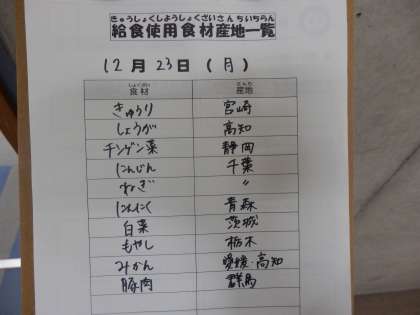 きゅうしょくしようしょくざいさんちいちらん
給食使用食材産地一覧
12月23日(月)
しょくざい さんち
食材 産地
きゅうり 宮崎
しょうが 高知
チンゲン菜 静岡
にんじん 千葉
ねぎ 〃
にんにく 青森
白菜 茨城
もやし 栃木
みかん 愛媛・高知
豚肉 群馬